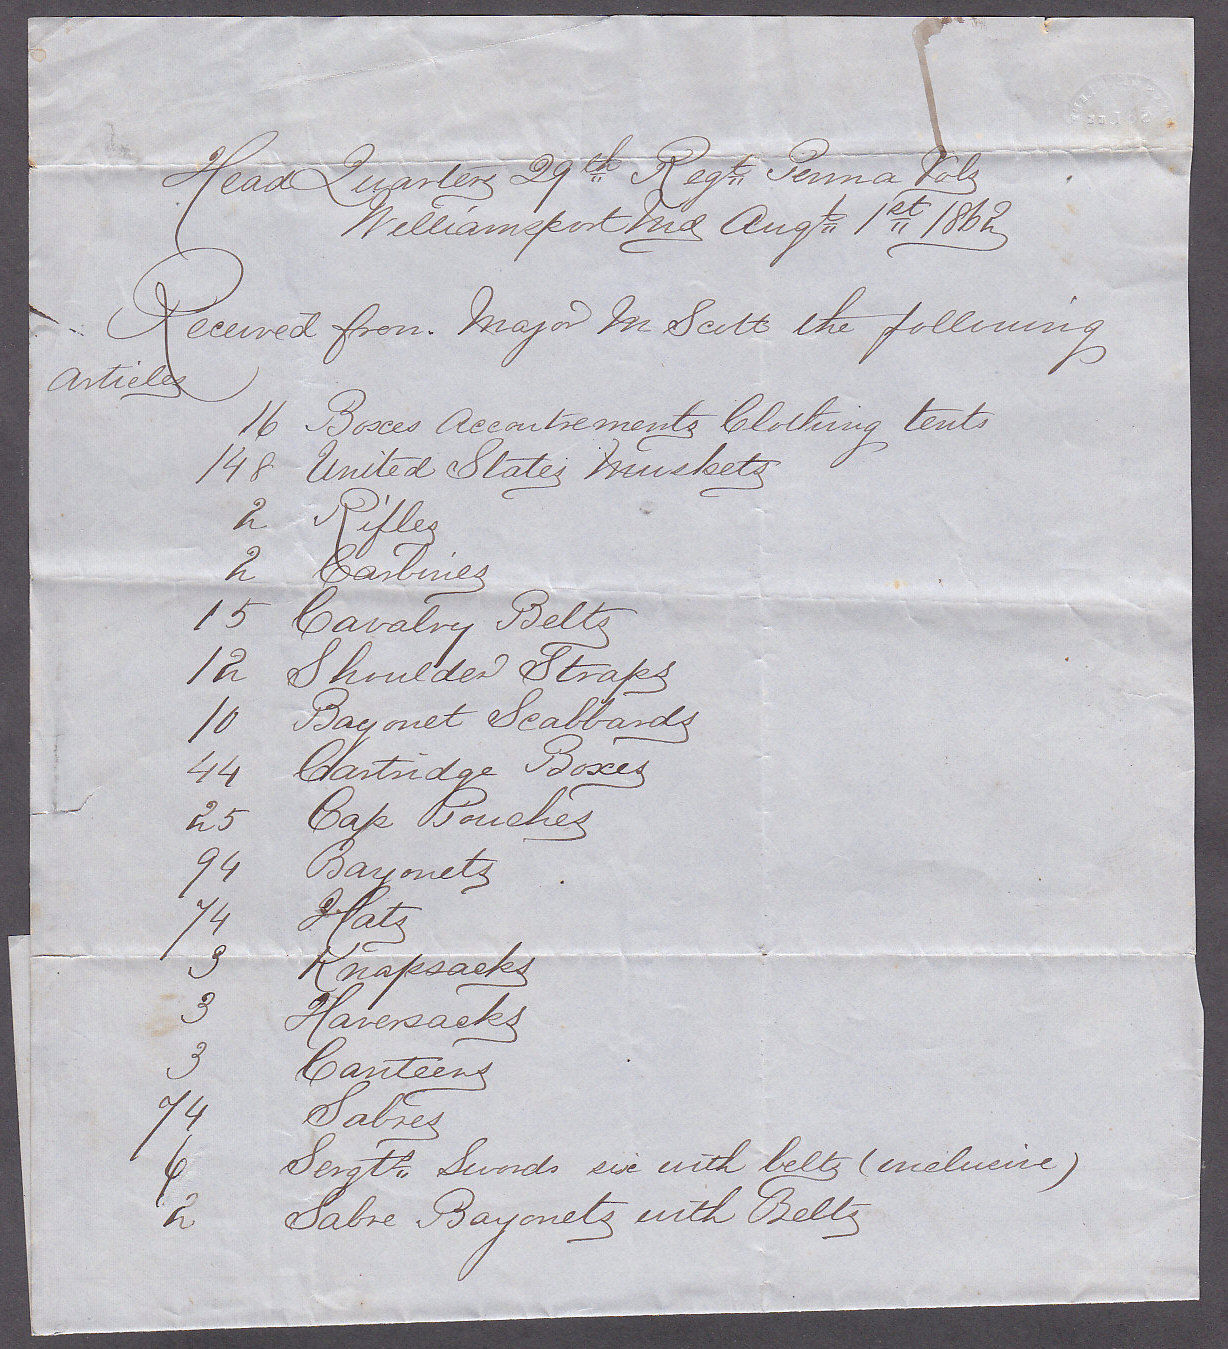 Head Quarters 29th Regt Penna Vols
Williamsport Md Augt 1st 1862
Received from Major M Scott the following
articles
16 Boxes accoutrements Clothing tents
148 United States Muskets
2 Rifles
2 Carbines
15 Cavalry Belts
12 Shoulder Straps
10 Bayonet Scabbards
44 Cartridge Boxes
25 Cap Pouches
94 Bayonets
74 Hats
3 Knapsacks
3 Haversacks
3 Canteens
74 Sabres
6 Sergts Swords six with belts (inclusive)
2 Sabre Bayonets with Belts